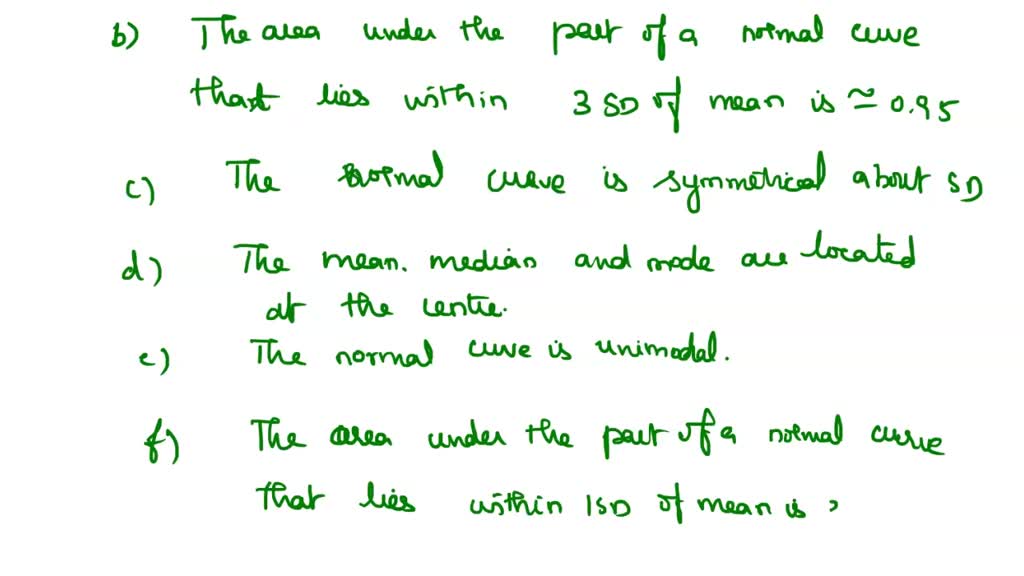 b) The area under the part of a normal curve
that lies within 3 SD of mean is ≃ 0.95
c) The normal curve is symmetrical about SD
d) The mean. median and mode are located
at the centre.
e) The normal curve is unimodal.
f) The area under the part of a normal curve
that lies within 1 SD of mean is